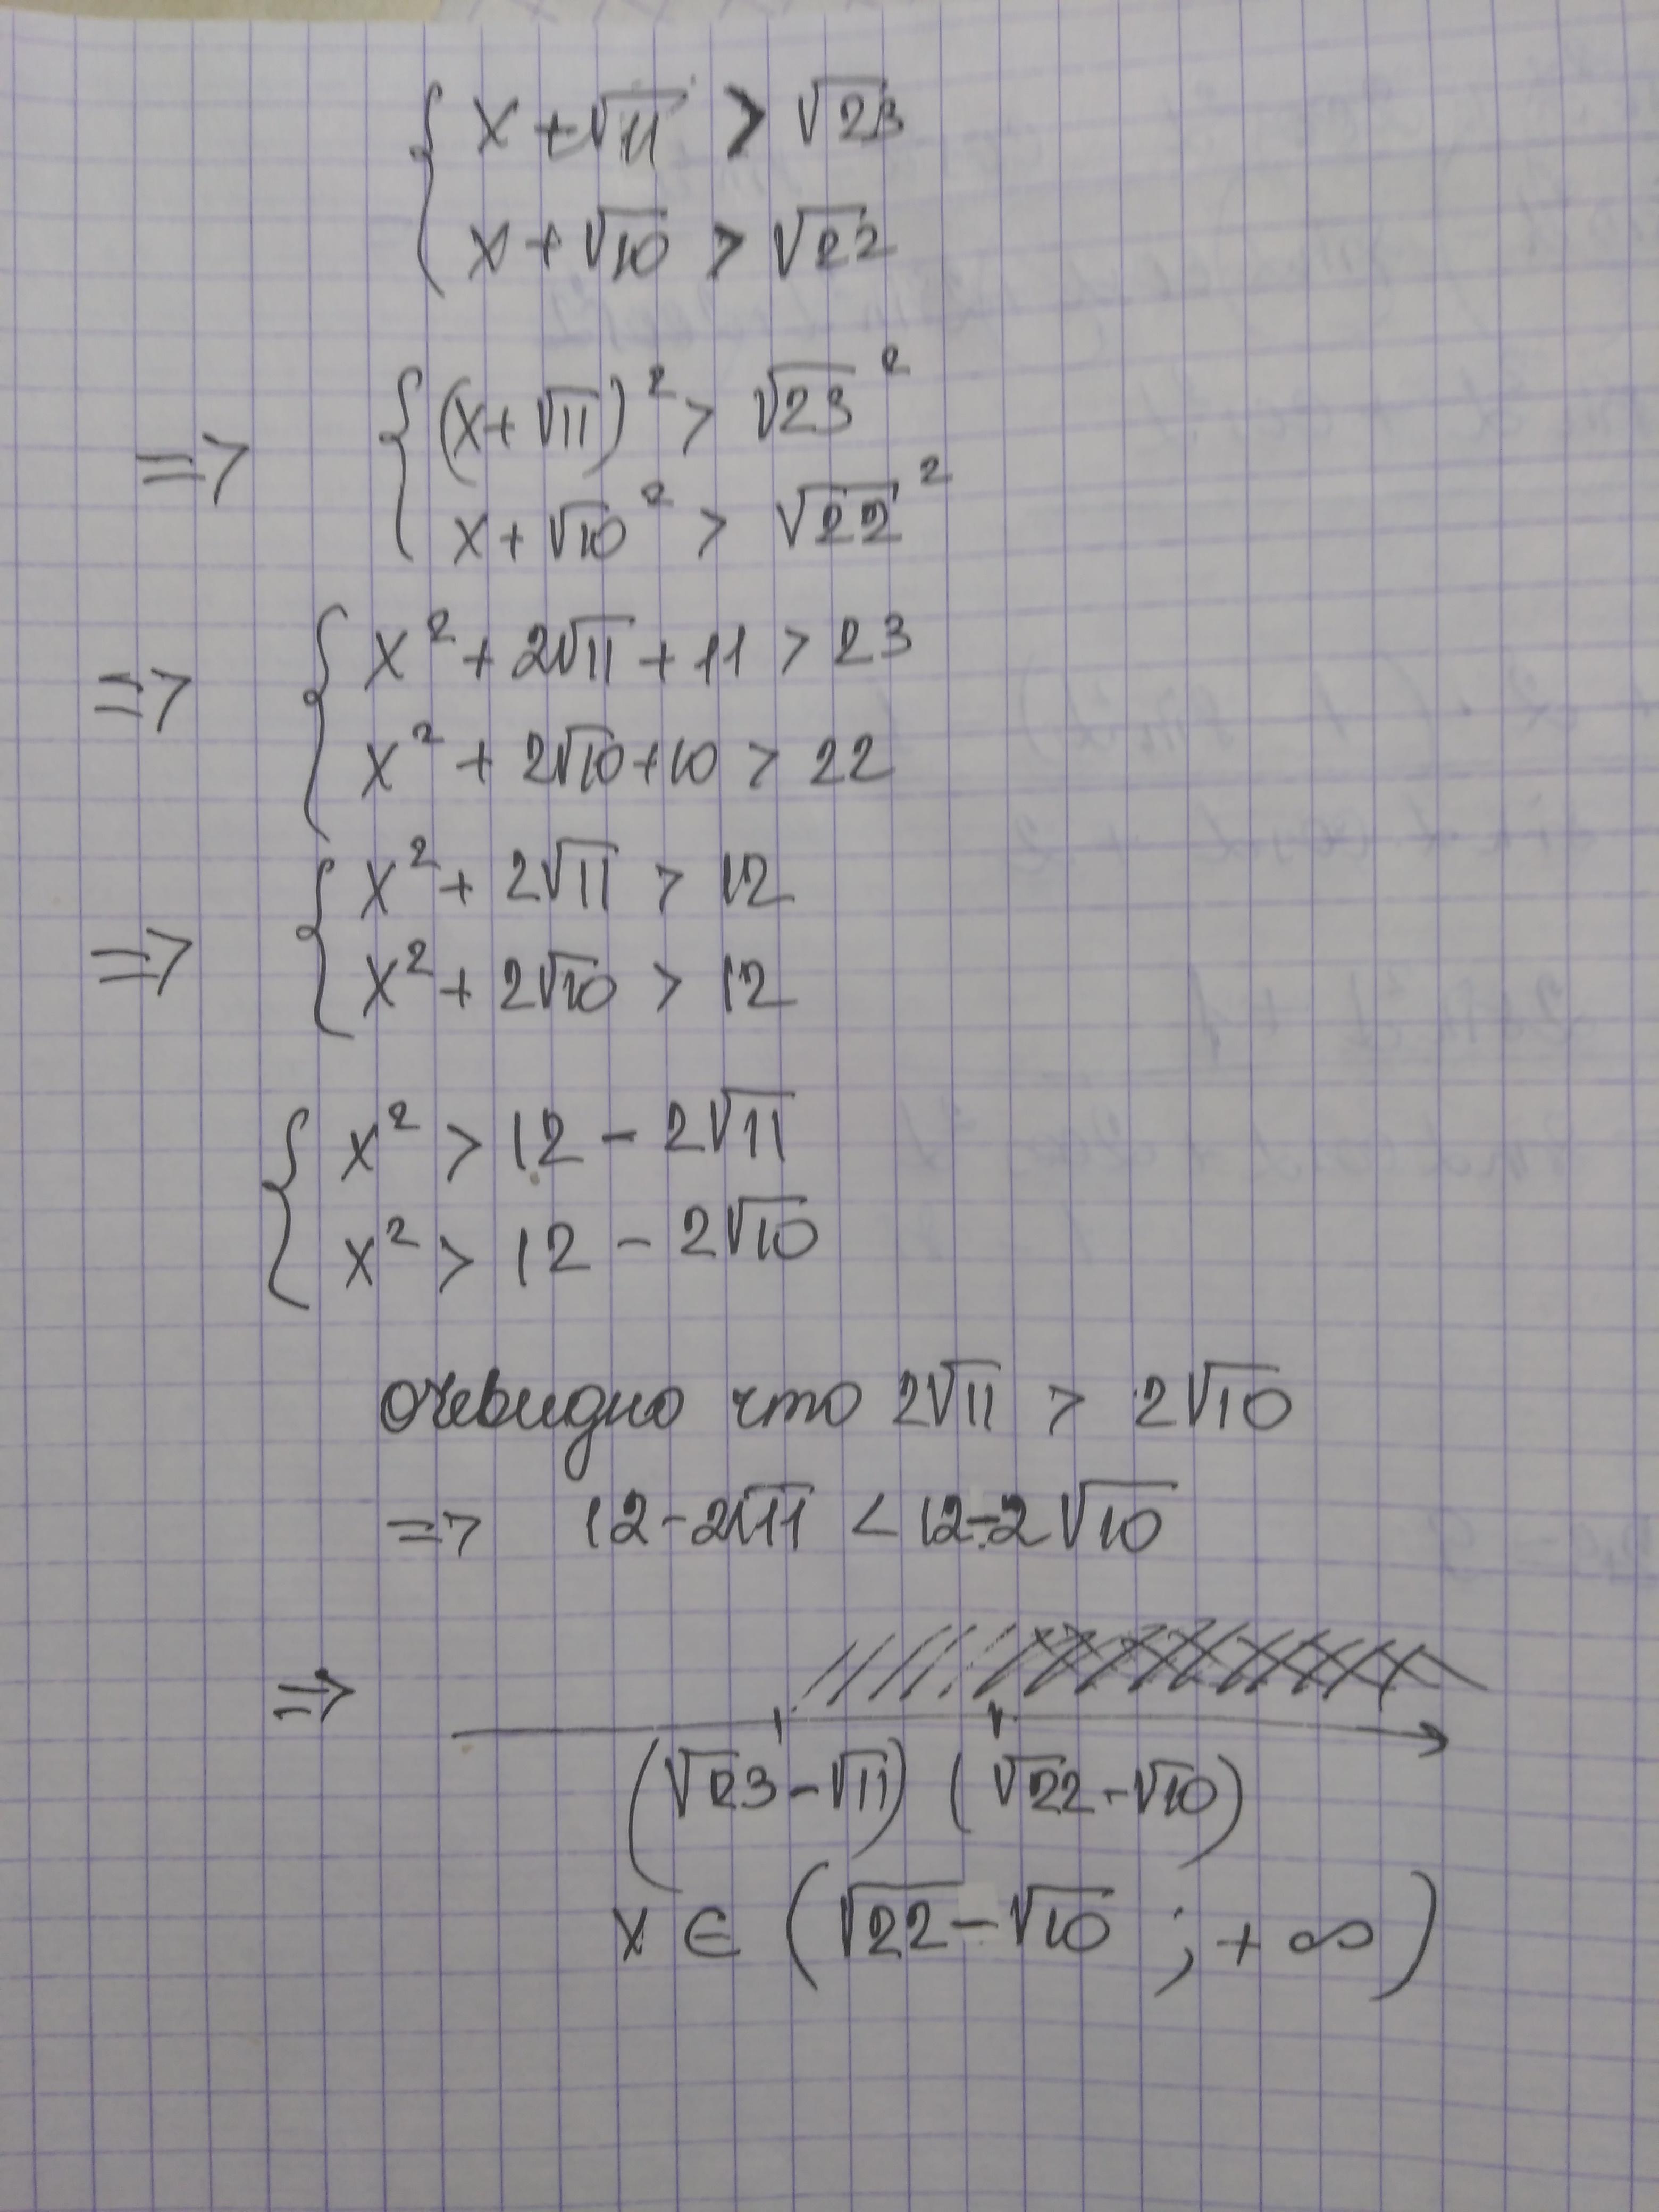 { x + √11 > √23
x + √10 > √22
=> { (x + √11)² > √23²
x + √10² > √22²
=> { x² + 2√11 + 11 > 23
x² + 2√10 + 10 > 22
=> { x² + 2√11 > 12
x² + 2√10 > 12
{ x² > 12 - 2√11
x² > 12 - 2√10
очевидно что 2√11 > 2√10
=> 12 - 2√11 < 12 - 2√10
=>
(√23 - √11) (√22 - √10)
x ∈ (√22 - √10 ; + ∞)